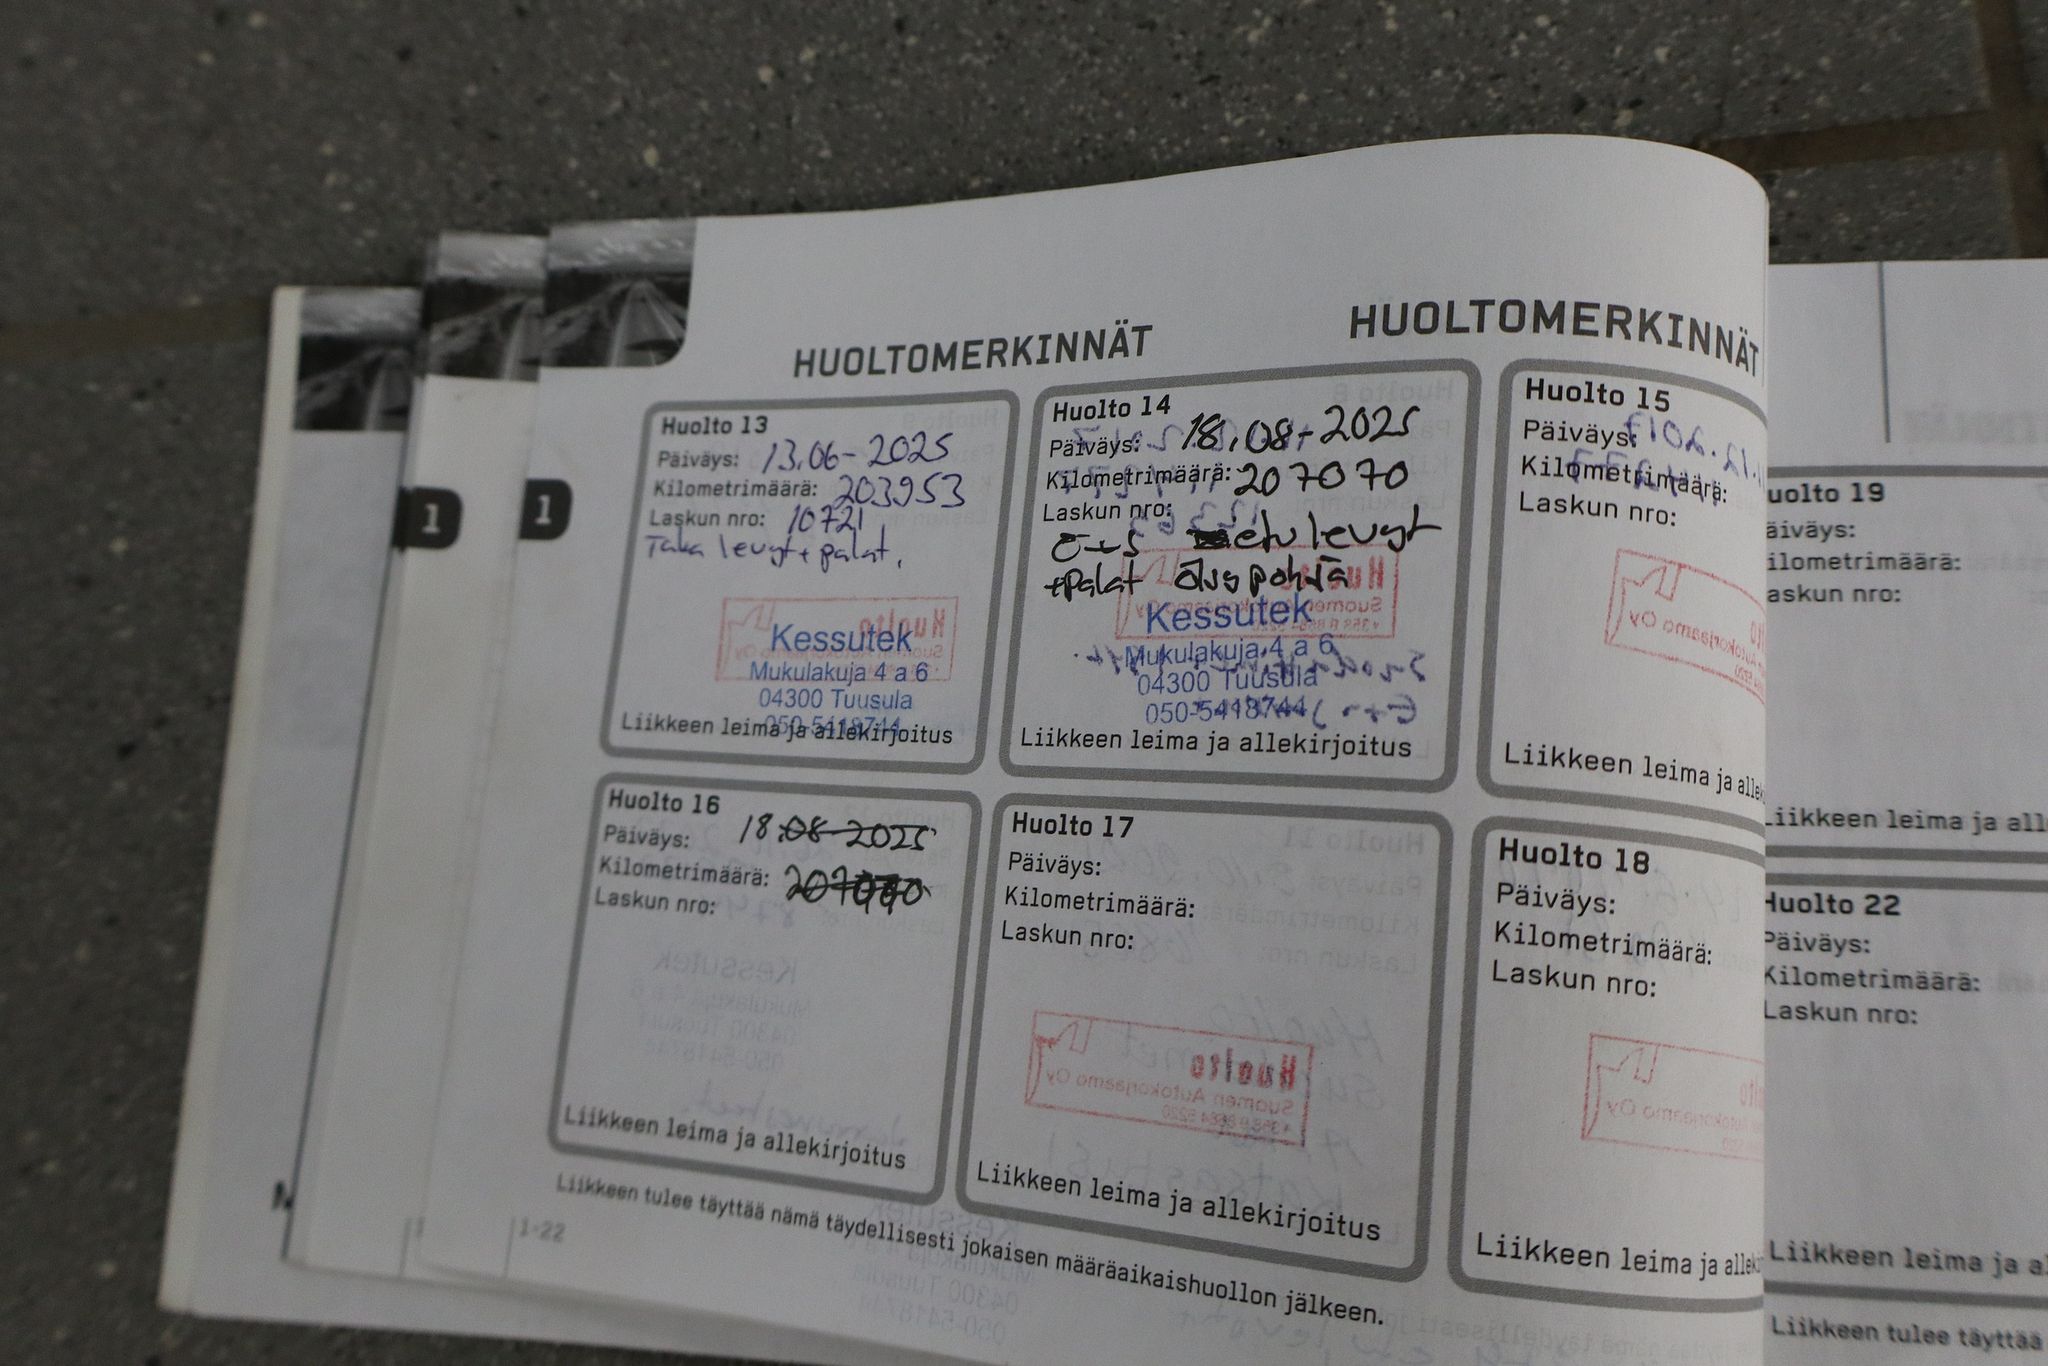 HUOLTOMERKINNÄT
HUOLTOMERKINNÄT
Huolto 13
Päiväys: 13.06-2025
Kilometrimäärä: 203953
Laskun nro: 10721
Taka levyt+palat.
Kessutek
Mukulakuja 4 a 6
04300 Tuusula
050-5418744
Liikkeen leima ja allekirjoitus
Huolto 14
Päiväys: 18.08-2025
Kilometrimäärä: 207070
Laskun nro:
etu levyt
+palat
Kessutek
Mukulakuja 4 a 6
04300 Tuusula
050-5418744
Liikkeen leima ja allekirjoitus
Huolto 15
Päiväys:
Kilometrimäärä:
Laskun nro:
Liikkeen leima ja
Huolto 16
Päiväys: 18.08-2025
Kilometrimäärä: 207070
Laskun nro:
Liikkeen leima ja allekirjoitus
Huolto 17
Päiväys:
Kilometrimäärä:
Laskun nro:
Huolto
Suomen Autokorjaamo Oy
Liikkeen leima ja allekirjoitus
Huolto 18
Päiväys:
Kilometrimäärä:
Laskun nro:
Liikkeen leima ja
Liikkeen tulee täyttää nämä täydellisesti jokaisen määräaikaishuollon jälkeen.
1-22
1
1
uolto 19
äiväys:
ilometrimäärä:
askun nro:
Liikkeen leima ja all
Huolto 22
Päiväys:
Kilometrimäärä:
Laskun nro:
Liikkeen leima ja al
Liikkeen tulee täyttää